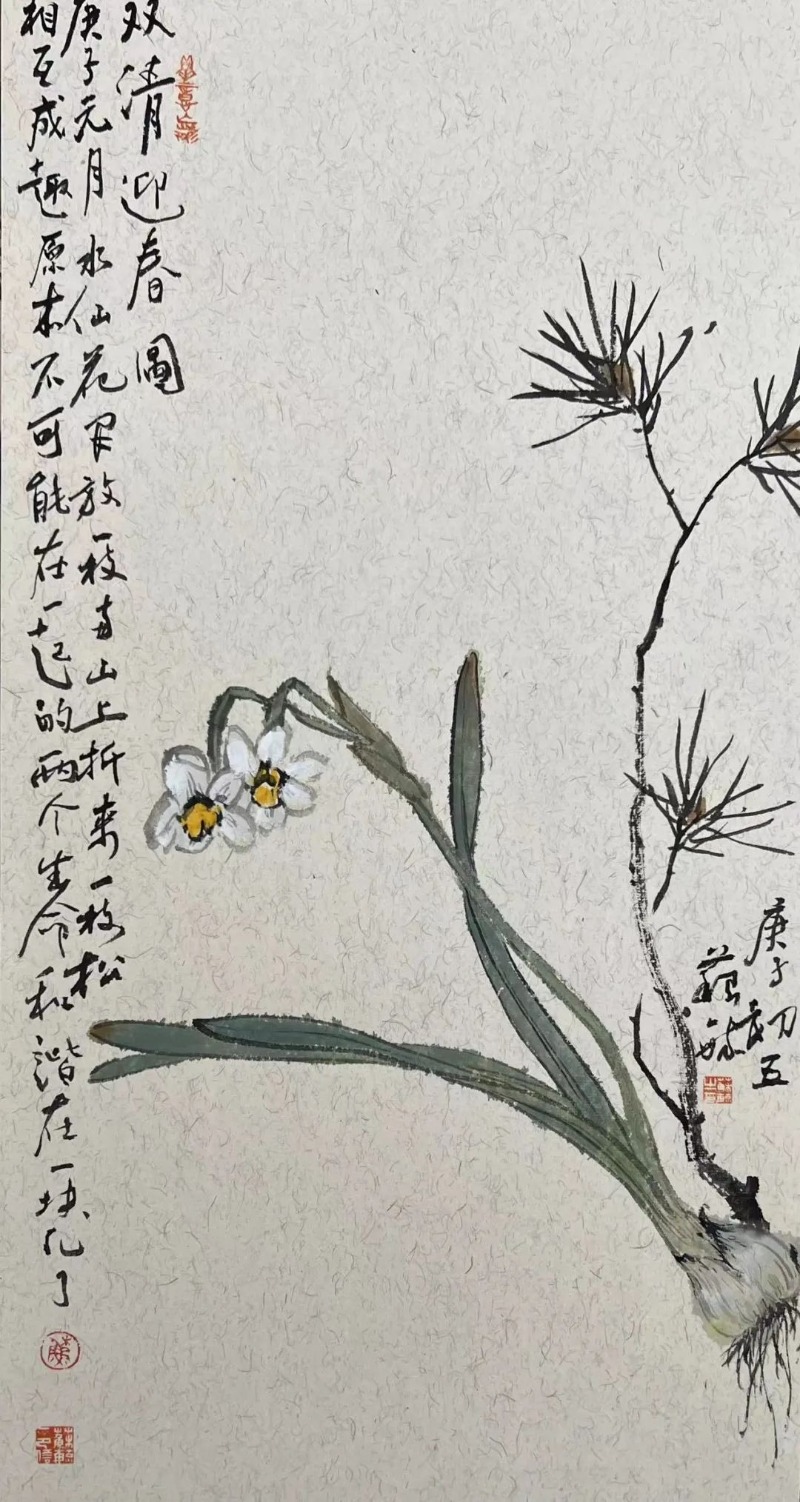 双清迎春圖
庚子元月水仙花开放一枝去山上折来一枝松
相互成趣原本不可能在一起的两个生命和谐在一块儿了
庚子初五